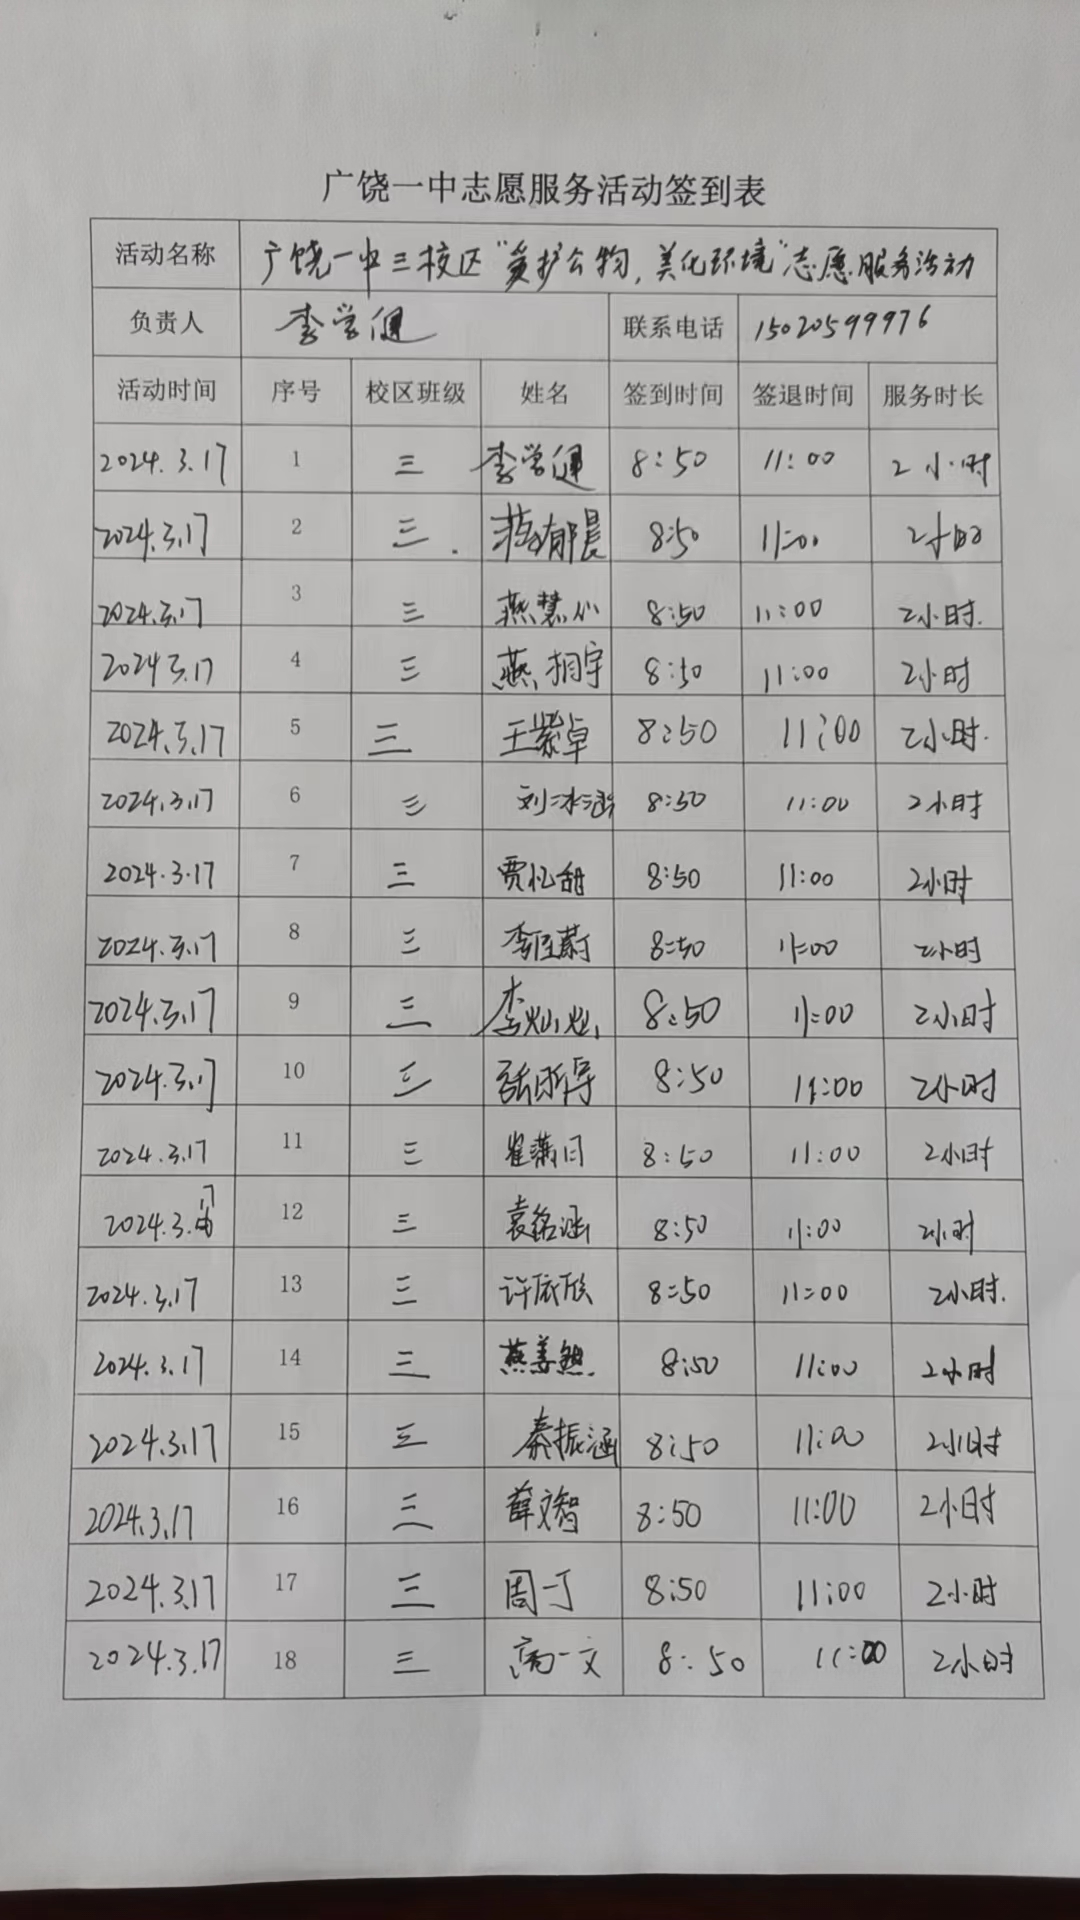 广饶一中志愿服务活动签到表
活动名称 广饶一中三校区“爱护公物,美化环境”志愿服务活动
负责人 李学健 联系电话 15020599976
活动时间 序号 校区班级 姓名 签到时间 签退时间 服务时长
2024.3.17 1 三 李学健 8:50 11:00 2小时
2024.3.17 2 三 8:50 11:00 2小时
2024.3.17 3 三 燕慧心 8:50 11:00 2小时.
2024 3.17 4 三 燕栩宇 8:50 11:00 2小时
2024.3.17 5 三 王紫卓 8:50 11:00 2小时.
2024.3.17 6 三 刘冰涵 8:50 11:00 2小时
2024.3.17 7 三 贾忆甜 8:50 11:00 2小时
2024.3.17 8 三 8:50 11:00 2小时
2024.3.17 9 三 李灿灿 8:50 11:00 2小时
2024.3.17 10 三 8:50 11:00 2小时
2024.3.17 11 三 崔满日 8:50 11:00 2小时
2024.3.17 12 三 袁铭涵 8:50 11:00 2小时
2024.3.17 13 三 许依欣 8:50 11:00 2小时.
2024.3.17 14 三 燕善然 8:50 11:00 2小时
2024.3.17 15 三 秦振涵 8:50 11:00 2小时
2024.3.17 16 三 薛文智 8:50 11:00 2小时
2024.3.17 17 三 周一丁 8:50 11:00 2小时
2024.3.17 18 三 高一文 8:50 11:00 2小时